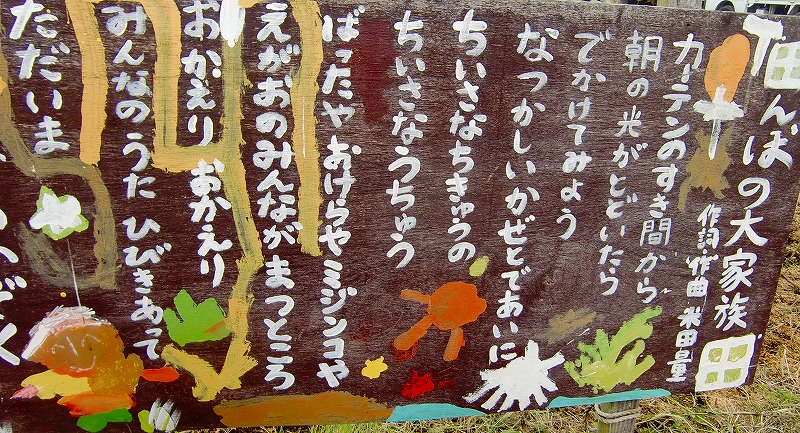 田んぼの大家族 田
作詞・作曲 米田量
カーテンのすき間から
朝の光がとどいたら
でかけてみよう
なつかしいかぜとであいに
ちいさなちきゅうの
ちいさなうちゅう
ばったや おけらや ミジンコや
えがおのみんながまつところ
おかえり おかえり
みんなのうた ひびきあって
ただいま